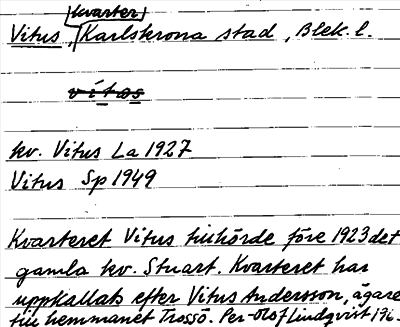 kvarter
Vitus, Karlskrona stad, Blek. l.
vitos
kv. Vitus La 1927
Vitus Sp 1949
Kvarteret Vitus tillhörde före 1923 det
gamla kv. Stuart. Kvarteret har
uppkallats efter Vitus Andersson, ägare
till hemmanet Trossö. Per-Olof Lindqvist